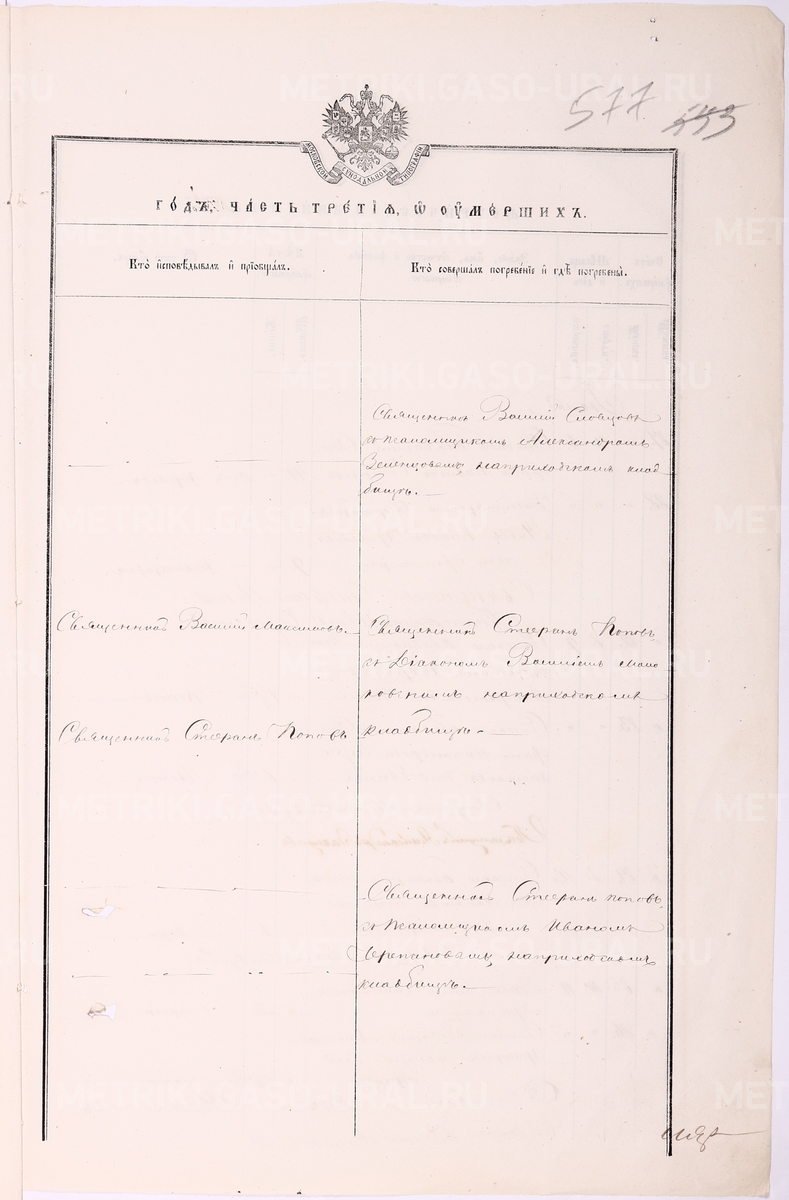 METRIKI.GASO-URAL.RU
577 555
МОСКОВСКОЙ СѴНОДАЛЬНОЙ ТИПОГРАФІИ
го́да, ча́сть тре́тїѧ, ѡ҆ ᲂу҆ме́ршихъ.
Кто̀ и҆сповѣ́дывалъ и҆ прїѡбща́лъ.
Кто̀ соверша́лъ погребе́нїе и҆ гдѣ̀ погребены̀.
Священникъ Василій Словцовъ
съ псаломщикомъ Александромъ
Зеленцовымъ, на приходскомъ клад
бищѣ. —
Священникъ Василій Максимовъ. —
Священникъ Стефанъ Поповъ
съ Діакономъ Василіемъ Мако
ровскимъ на приходскомъ
кладбищѣ. —
Священникъ Стефанъ Поповъ
Священникъ Стефанъ Поповъ,
съ псаломщикомъ Иваномъ
Черепановымъ, на приходскомъ
кладбищѣ. —